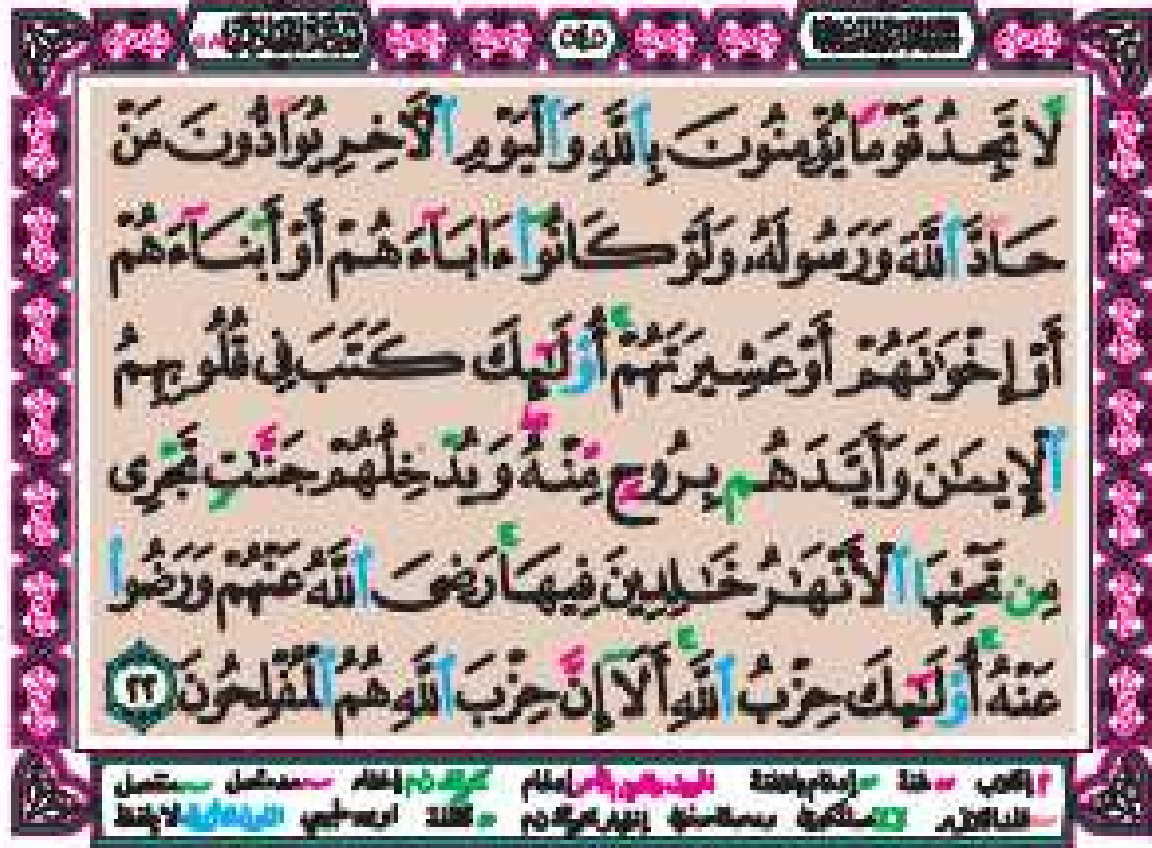 ٥٤٥
لَا تَجِدُ قَوْمًا يُؤْمِنُونَ بِٱللَّهِ وَٱلْيَوْمِ ٱلْأَخِرِ يُوَآدُّونَ مَنْ
حَآدَّ ٱللَّهَ وَرَسُولَهُۥ وَلَوْ كَانُوٓا۟ ءَابَآءَهُمْ أَوْ أَبْنَآءَهُمْ
أَوْ إِخْوَٰنَهُمْ أَوْ عَشِيرَتَهُمْ ۚ أُو۟لَٰٓئِكَ كَتَبَ فِى قُلُوبِهِمُ
ٱلْإِيمَٰنَ وَأَيَّدَهُم بِرُوحٍ مِّنْهُ ۖ وَيُدْخِلُهُمْ جَنَّٰتٍ تَجْرِى
مِن تَحْتِهَا ٱلْأَنْهَٰرُ خَٰلِدِينَ فِيهَا ۚ رَضِىَ ٱللَّهُ عَنْهُمْ وَرَضُوا۟
عَنْهُ ۚ أُو۟لَٰٓئِكَ حِزْبُ ٱللَّهِ ۚ أَلَآ إِنَّ حِزْبَ ٱللَّهِ هُمُ ٱلْمُفْلِحُونَ ٢٢